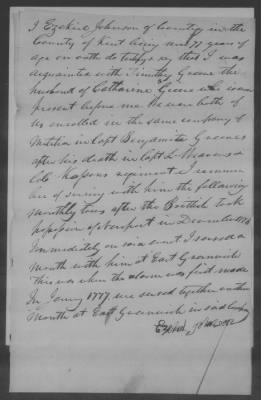 I Ezekiel Johnson of Coventry in the
County of Kent being aged 77 years of
age on oath do testify & say that I was
acquainted with Timothy Greene the
husband of Catharine Greene who is now
present before me. We were both of
us enrolled in the same company of
Militia in Capt Benjamin Greenes
after his death in Capt L. Weavers &
Col. regiment I remem
ber of serving with him the following
monthly tours after the British took
possession of Newport in December 1776
Immediately on said event I served a
Month with him at East Greenwich
This was when the alarm was first made
In Jany 1777, we served together another
Month at East Greenwich in said
Ezekiel Johnson